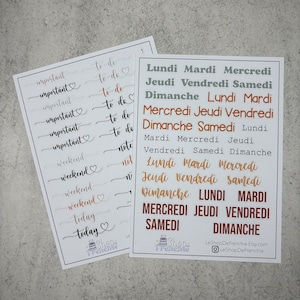 important
to do
important
to do
important
to do
important
to do
important
to do
important
weekend
weekend
weekend
weekend
today
today
Lundi Mardi Mercredi
Jeudi Vendredi Samedi
Dimanche Lundi Mardi
Mercredi Jeudi Vendredi
Dimanche Samedi Lundi
Mardi Mercredi Jeudi
Vendredi Samedi Dimanche
Lundi Mardi Mercredi
Jeudi Vendredi Samedi
Dimanche LUNDI MARDI
MERCREDI JEUDI VENDREDI
SAMEDI DIMANCHE